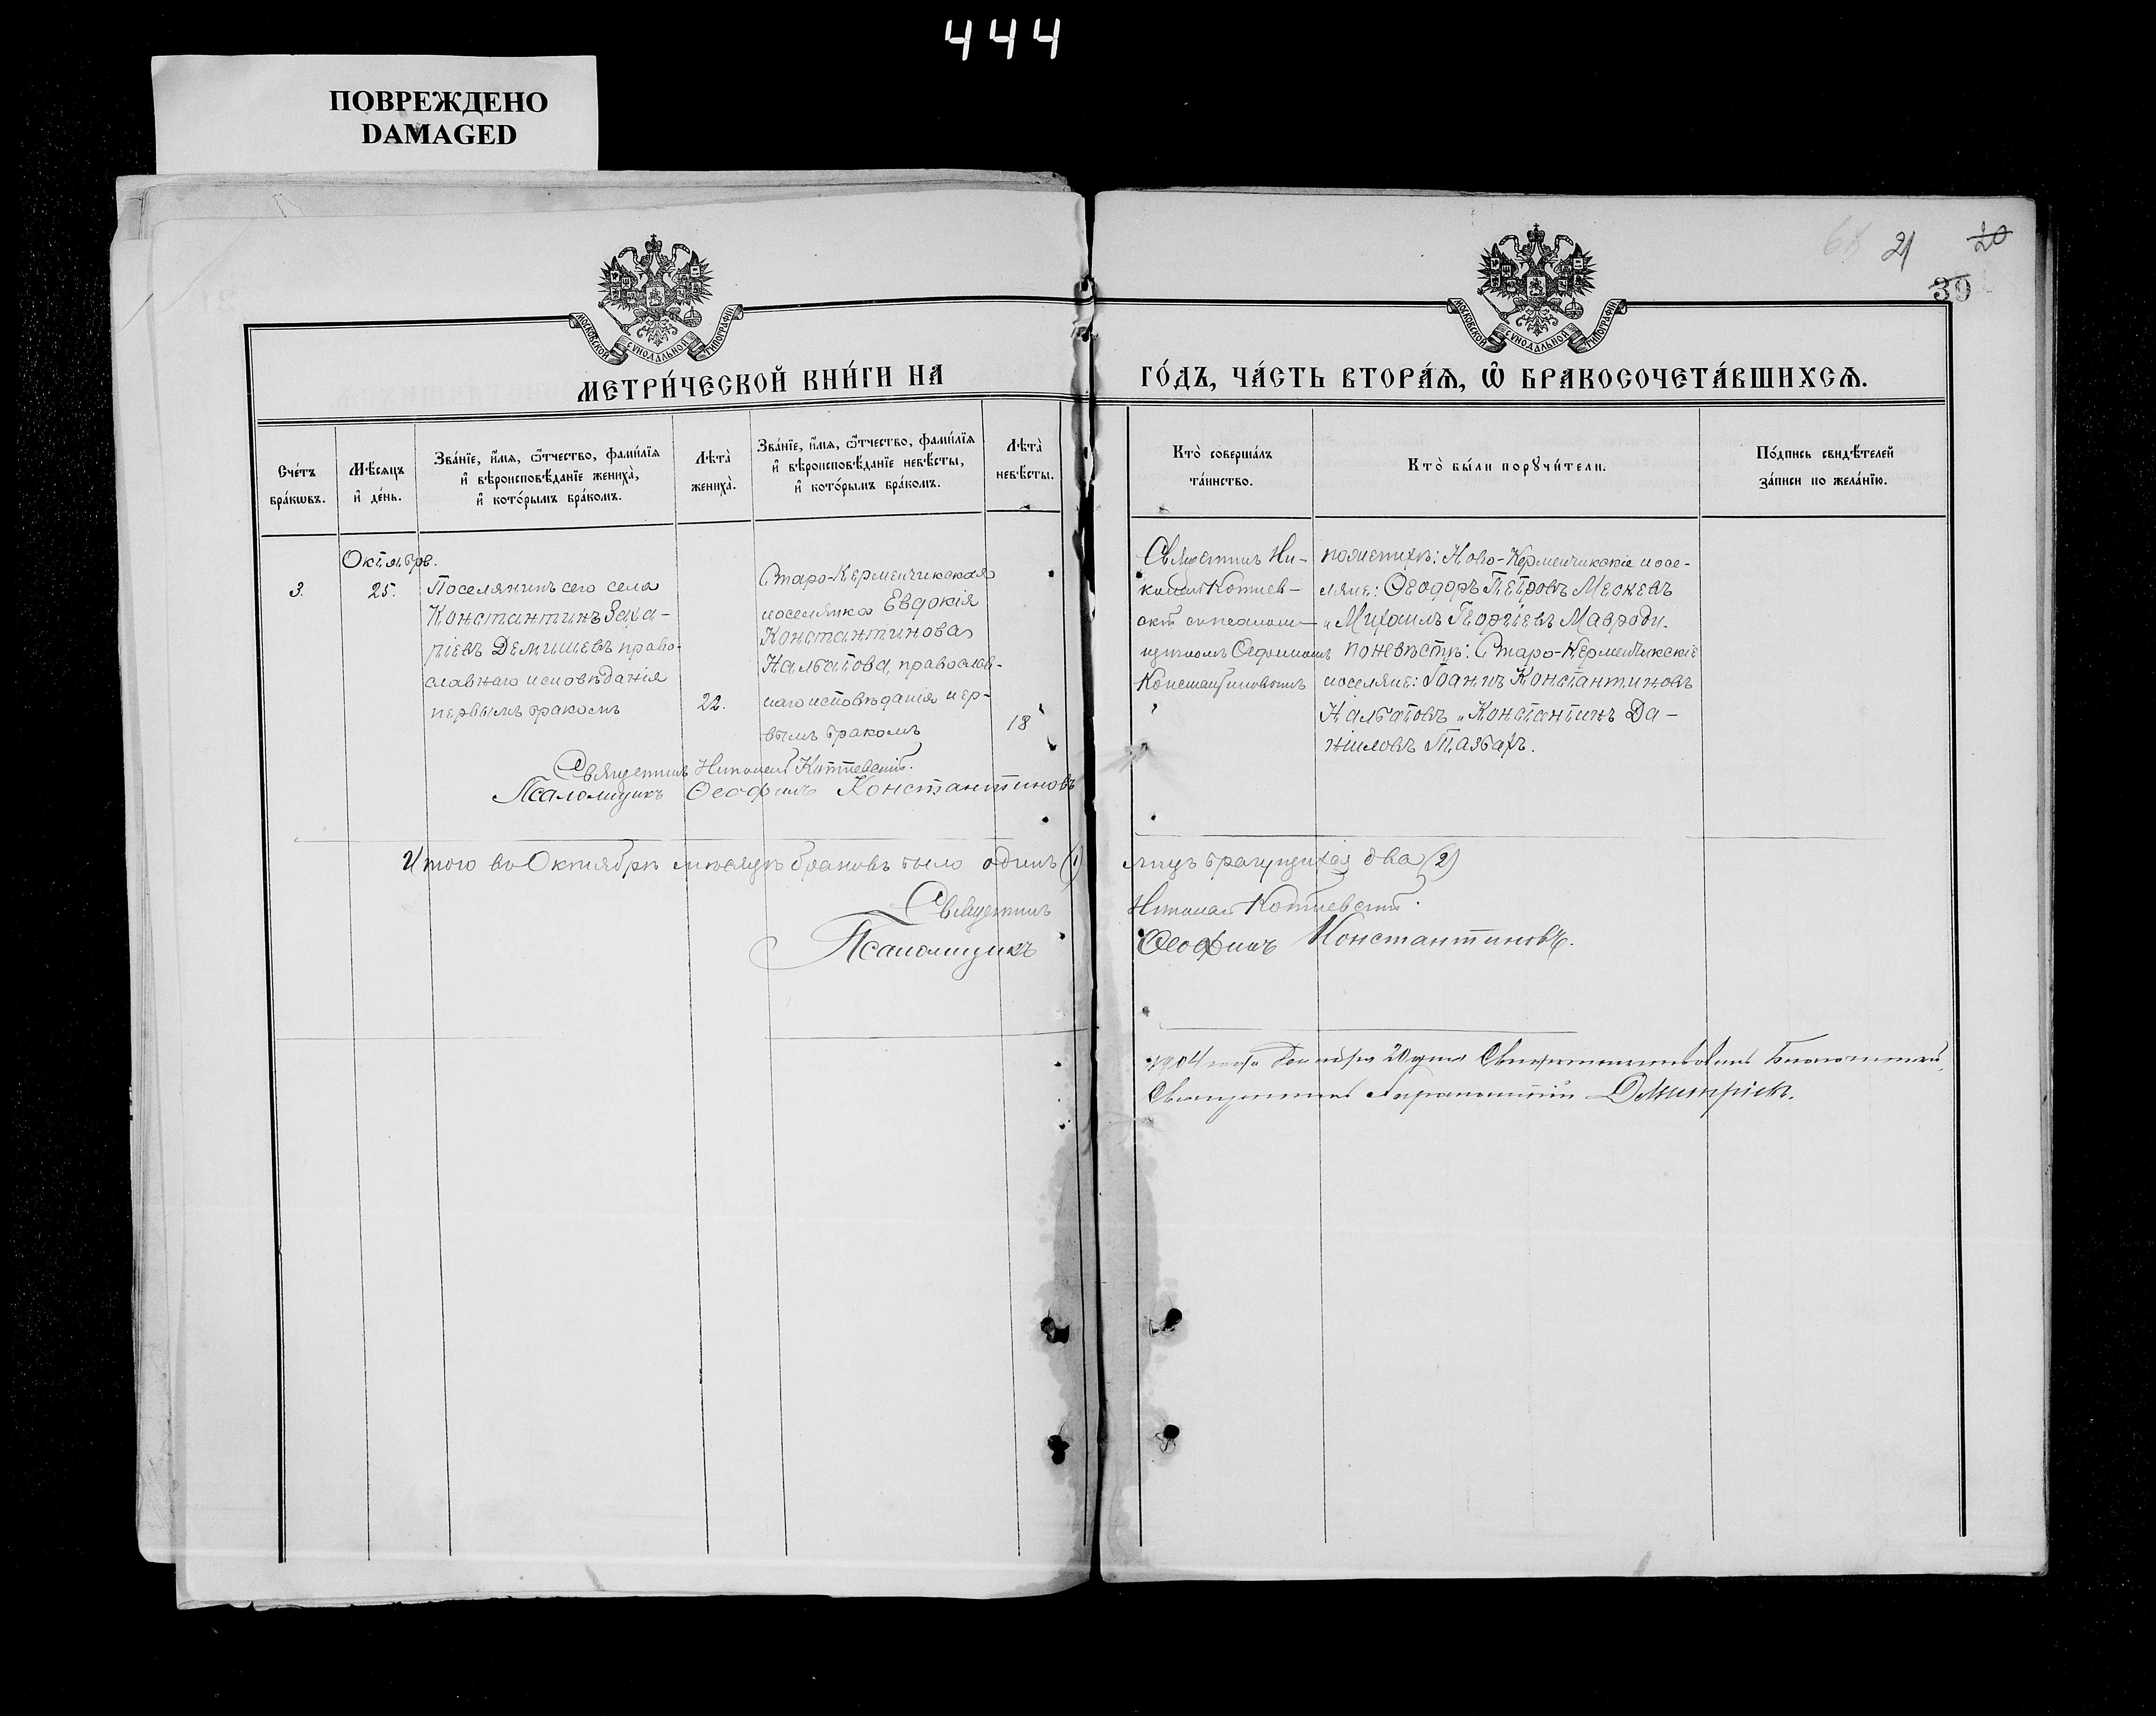 444
ПОВРЕЖДЕНО
DAMAGED
21
20
39
МОСКОВСКОЙ СѴНОДАЛЬНОЙ ТИПОГРАФІИ
МОСКОВСКОЙ СѴНОДАЛЬНОЙ ТИПОГРАФІИ
МЕТРИ́ЧЕСКОЙ КНИ́ГИ НА
ГО́ДЪ, ЧА́СТЬ ВТОРА́Ѧ, Ѡ҆ БРАКОСОЧЕТА́ВШИХСѦ.
Сче́тъ
бра́кѡвъ.
Мѣ́сяцъ
и҆ де́нь.
Зва́нїе, и҆́мѧ, ѻ҆́тчество, фамѝлїѧ
и҆ вѣроисповѣ́данїе жениха̀,
и҆ кото́рымъ бра́комъ.
Лѣта̀
жениха̀.
Зва́нїе, и҆́мѧ, ѻ҆́тчество, фами́лїѧ
и҆ вѣроисповѣ́данїе невѣ́сты,
и҆ кото́рымъ бра́комъ.
Лѣта̀
невѣ́сты.
Кто̀ соверша́лъ
та́инство.
Кто̀ бы́ли порꙋчи́тели.
По́дпись свидѣ́телей
за́писи по жела́нїю.
3.
Октябрь.
25.
Поселянинъ сего села
Константинъ Заха-
ріевъ Демишевъ право-
славнаго исповѣданія
первымъ бракомъ
22.
Старо-Керменчикская
поселянка Евдокія
Константинова
Налбатова, православ-
наго исповѣданія пер-
вымъ бракомъ
18
Священникъ Ни-
колай Котлев-
скій съ псалом-
щикомъ Ѳеофиломъ
Константиновымъ
по женихѣ: Ново-Керменчикскіе посе-
ляне: Ѳеодоръ Петровъ Мескевъ
и Михаилъ Георгіевъ Мавроди.
по невѣстѣ: Старо-Керменчикскіе
поселяне: Іоаннъ Константиновъ
Налбатовъ и Константинъ Да-
ниловъ Тазбахъ.
Священникъ Николай Котлевскій.
Псаломщикъ Ѳеофилъ Константиновъ
Итого въ Октябрѣ мѣсяцѣ браковъ было одинъ (1) лицъ брачущихся два (2)
Священникъ Николай Котлевскій.
Псаломщикъ Ѳеофилъ Константиновъ.
1904 года 20 дня
Священникъ Дмитріевъ.